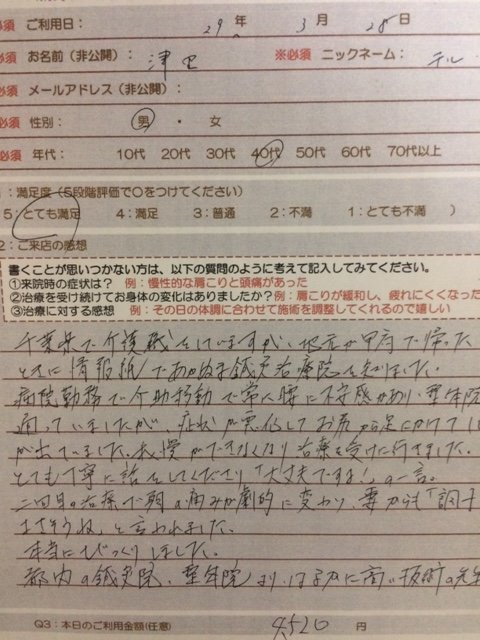 必須 ご利用日： 29 年 3 月 28 日
必須 お名前（非公開）： 津 ※必須 ニックネーム： テル
必須 メールアドレス（非公開）：
必須 性別： 男 ・ 女
必須 年代： 10代 20代 30代 40代 50代 60代 70代以上
：満足度（5段階評価で○をつけてください）
5：とても満足 4：満足 3：普通 2：不満 1：とても不満 ）
2：ご来店の感想
書くことが思いつかない方は、以下の質問のように考えて記入してみてください。
①来院時の症状は？ 例：慢性的な肩こりと頭痛があった
②治療を受け続けてお身体の変化はありましたか？例：肩こりが緩和し、疲れにくくなった
③治療に対する感想 例：その日の体調に合わせて施術を調整してくれるので嬉しい
千葉県で介護職をしていますが、地元が甲府で帰った
ときに情報紙であかぬま鍼灸治療院を知りました。
病院勤務で介助移動で常に腰に不安感があり、整骨院
通っていましたが、症状が悪化してお尻から足にかけて
が出ていました。我慢ができなくなり治療を受けに行きました。
とても丁寧に話をしてくださり「大丈夫ですよ！」の一言。
二回目の治療で朝の痛みが劇的に変わり、妻からも「調子
よさそうね」と言われました。
本当にびっくりしました。
都内の鍼灸院、整骨院よりはるかに高い技術の先生
Q3：本日のご利用金額（任意） 4520 円